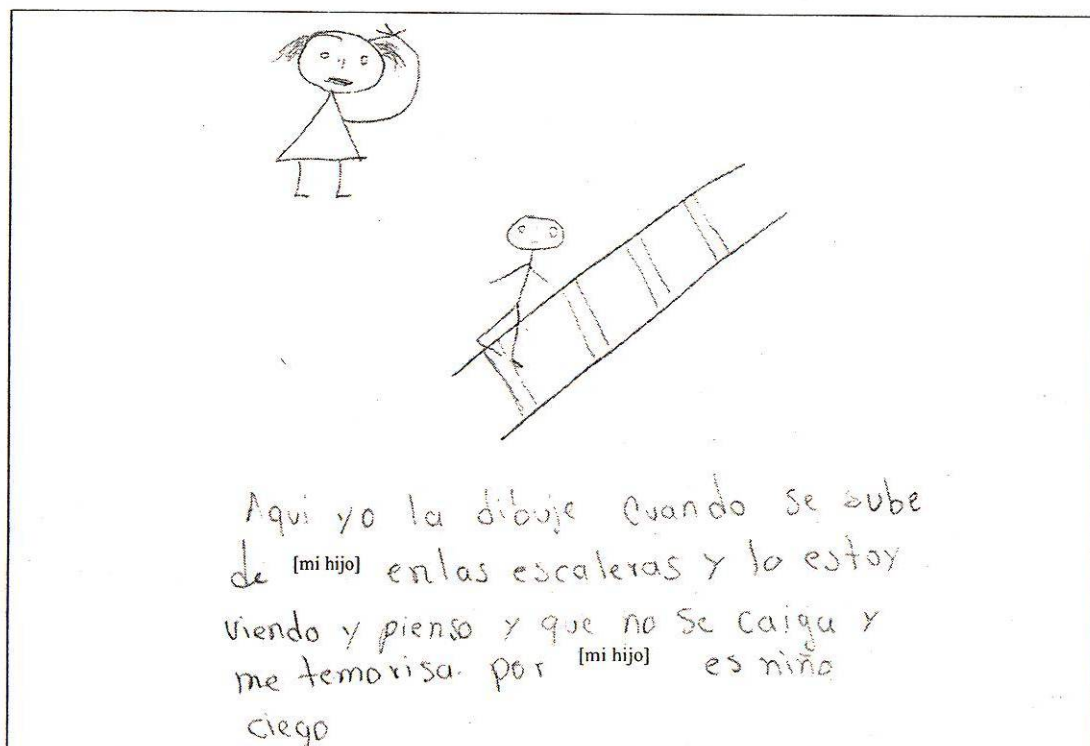 Aqui yo la dibuje Cuando se sube
de [mi hijo] enlas escaleras y lo estoy
viendo y pienso y que no se caiga y
me temorisa. por [mi hijo] es niño
ciego